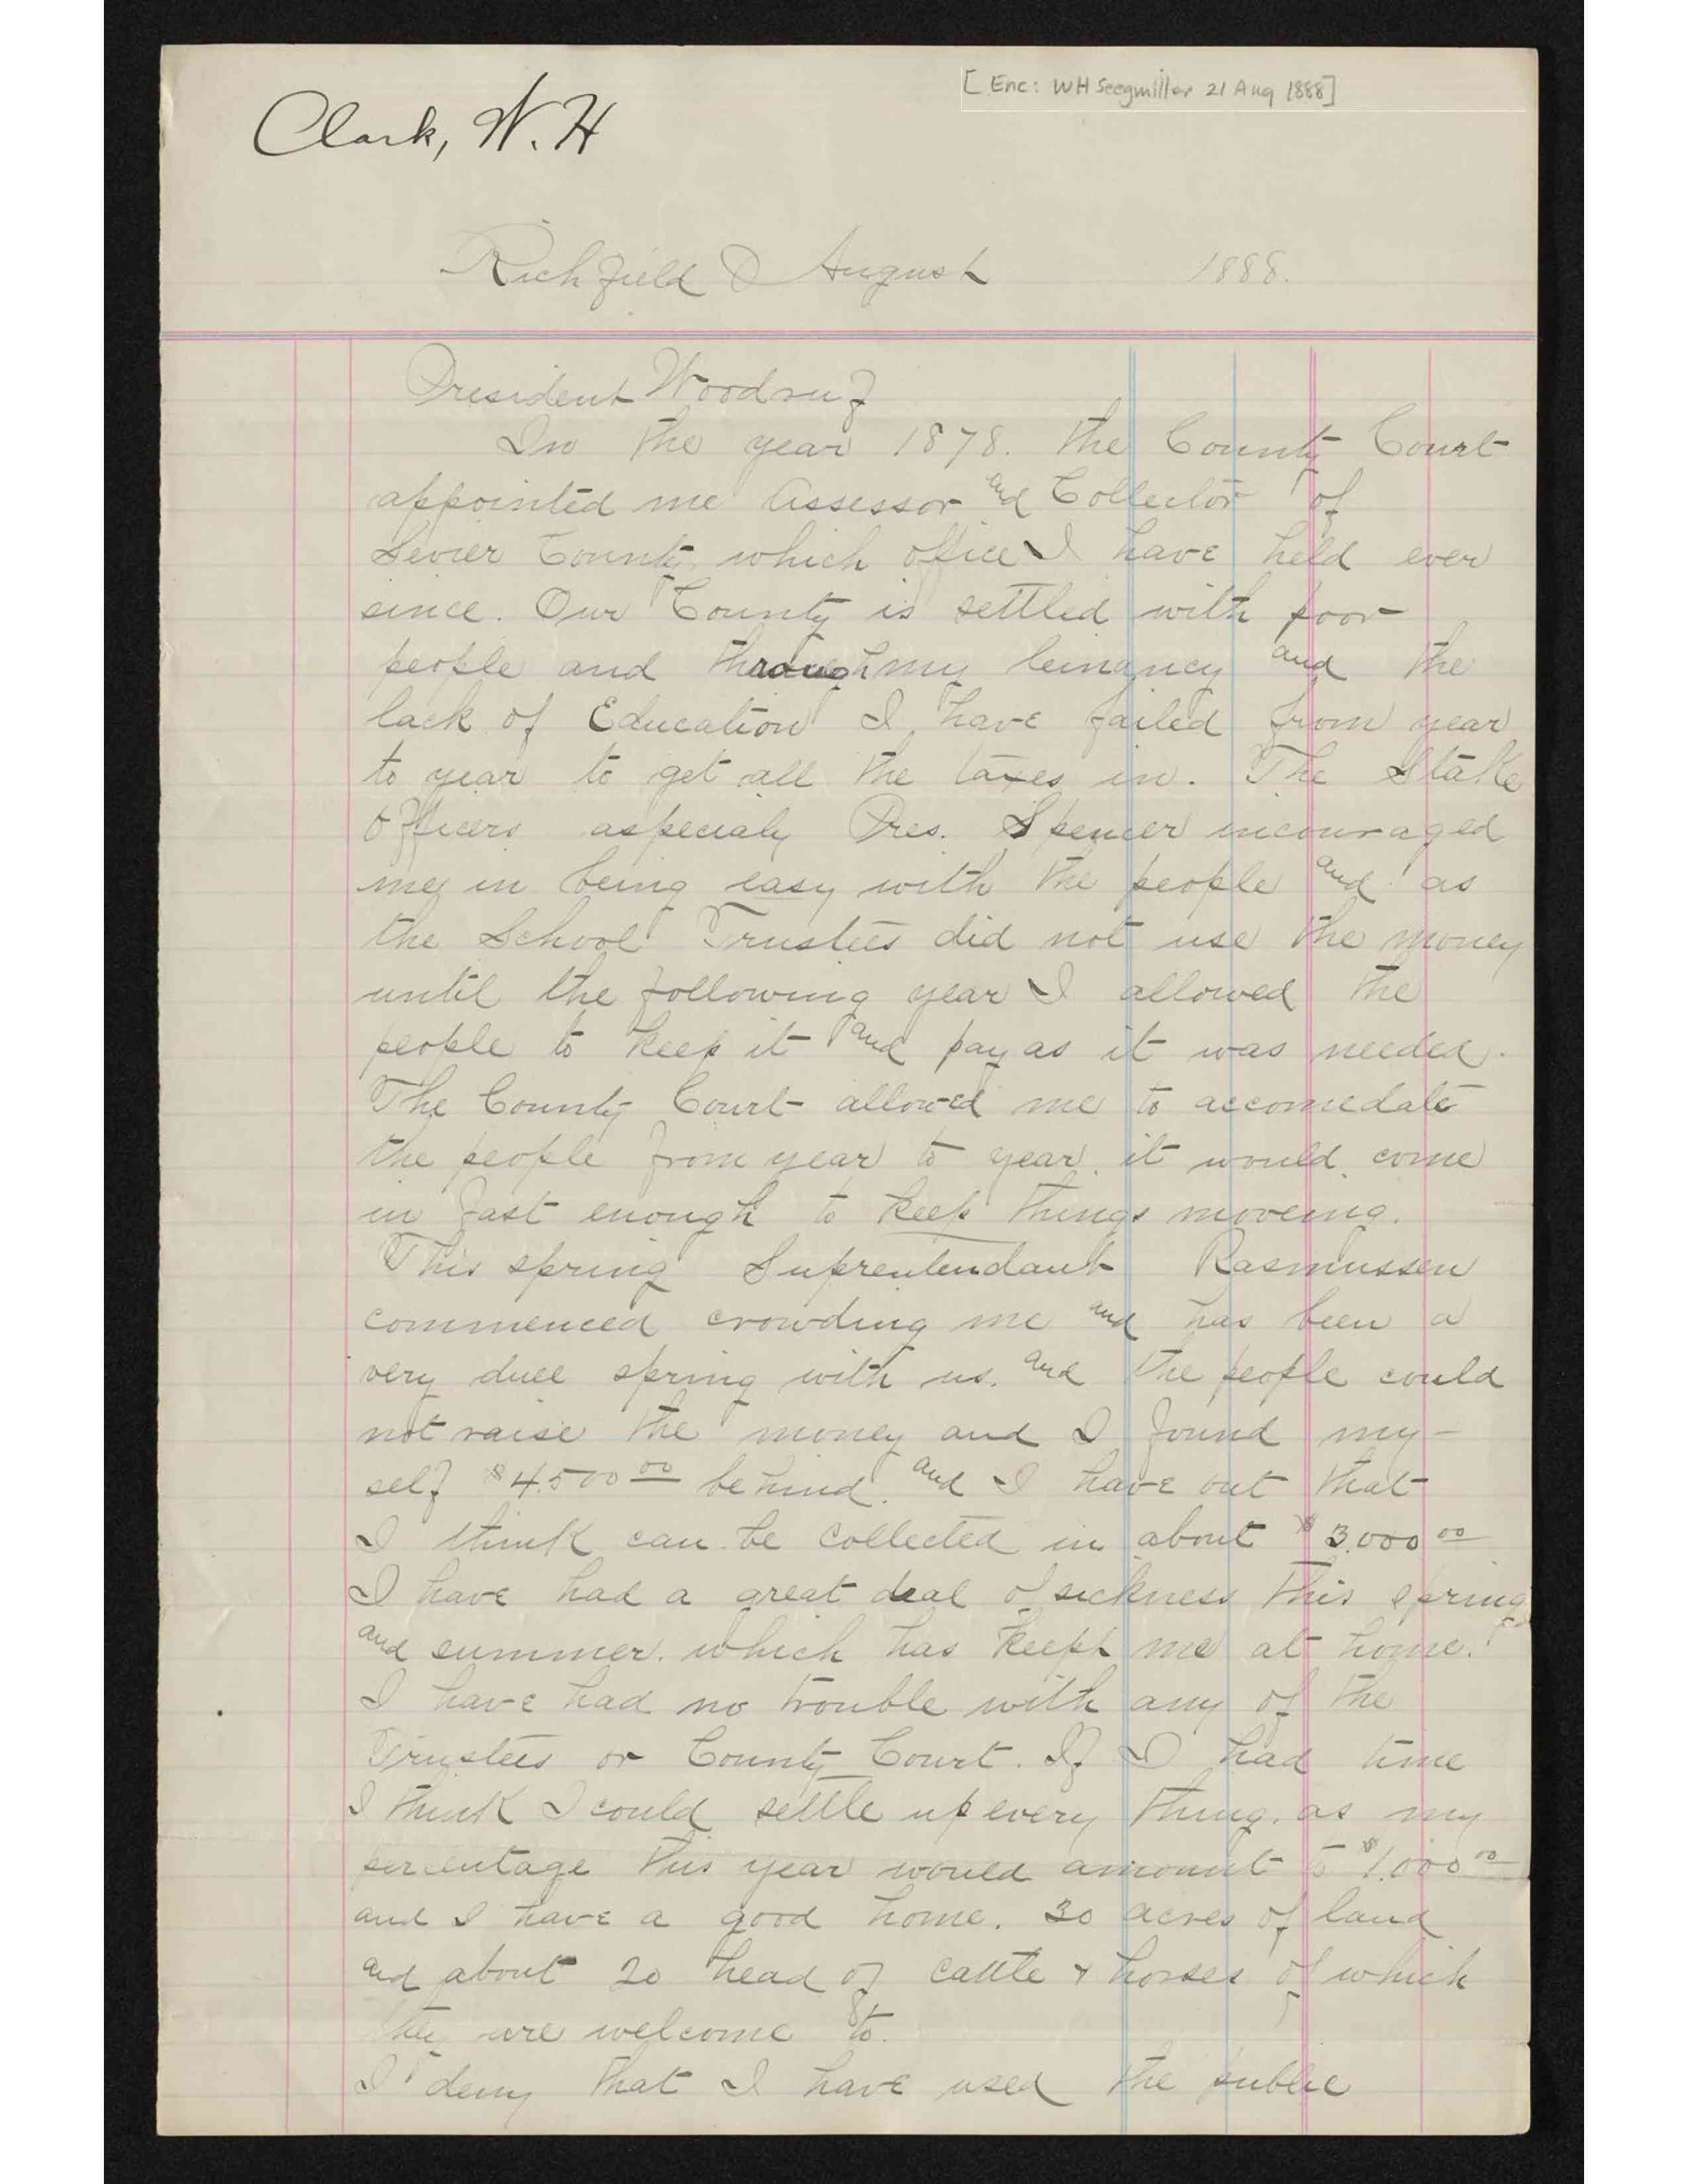 [Enc: WH Seegmiller 21 Aug 1888]
Clark, W. H
Richfield August 1888.
President Woodruf
In the year 1878. the County Court
appointed me Assessor and Collector of
Sevier County which office I have held ever
since. Our County is settled with poor
people and through my leinancy and the
lack of Education I have failed from year
to year to get all the taxes in. The Stake
Officers aspecialy Pres. Spencer incouraged
me in being easy with the people and as
the School Trustees did not use the money
until the following year I allowed the
people to keep it and pay as it was needed.
The County Court allowed me to accomedate
the people from year to year. it would come
in fast enough to keep things moveing.
This spring Suprentendant Rasmussen
commenced crowding me and has been a
very dull spring with us. and the people could
not raise the money and I found my-
self $4.500 00 behind. and I have out that
I think can be collected in about $3.000 00
I have had a great deal of sickness this spring
and summer. which has keept me at home.
I have had no trouble with any of the
Trustees or County Court. If I had time
I think I could settle up every thing. as my
percentage this year would amount to $1.000 00
and I have a good home. 30 acres of land
and about 20 head of cattle & horses of which
they are welcome to.
I deny that I have used the public